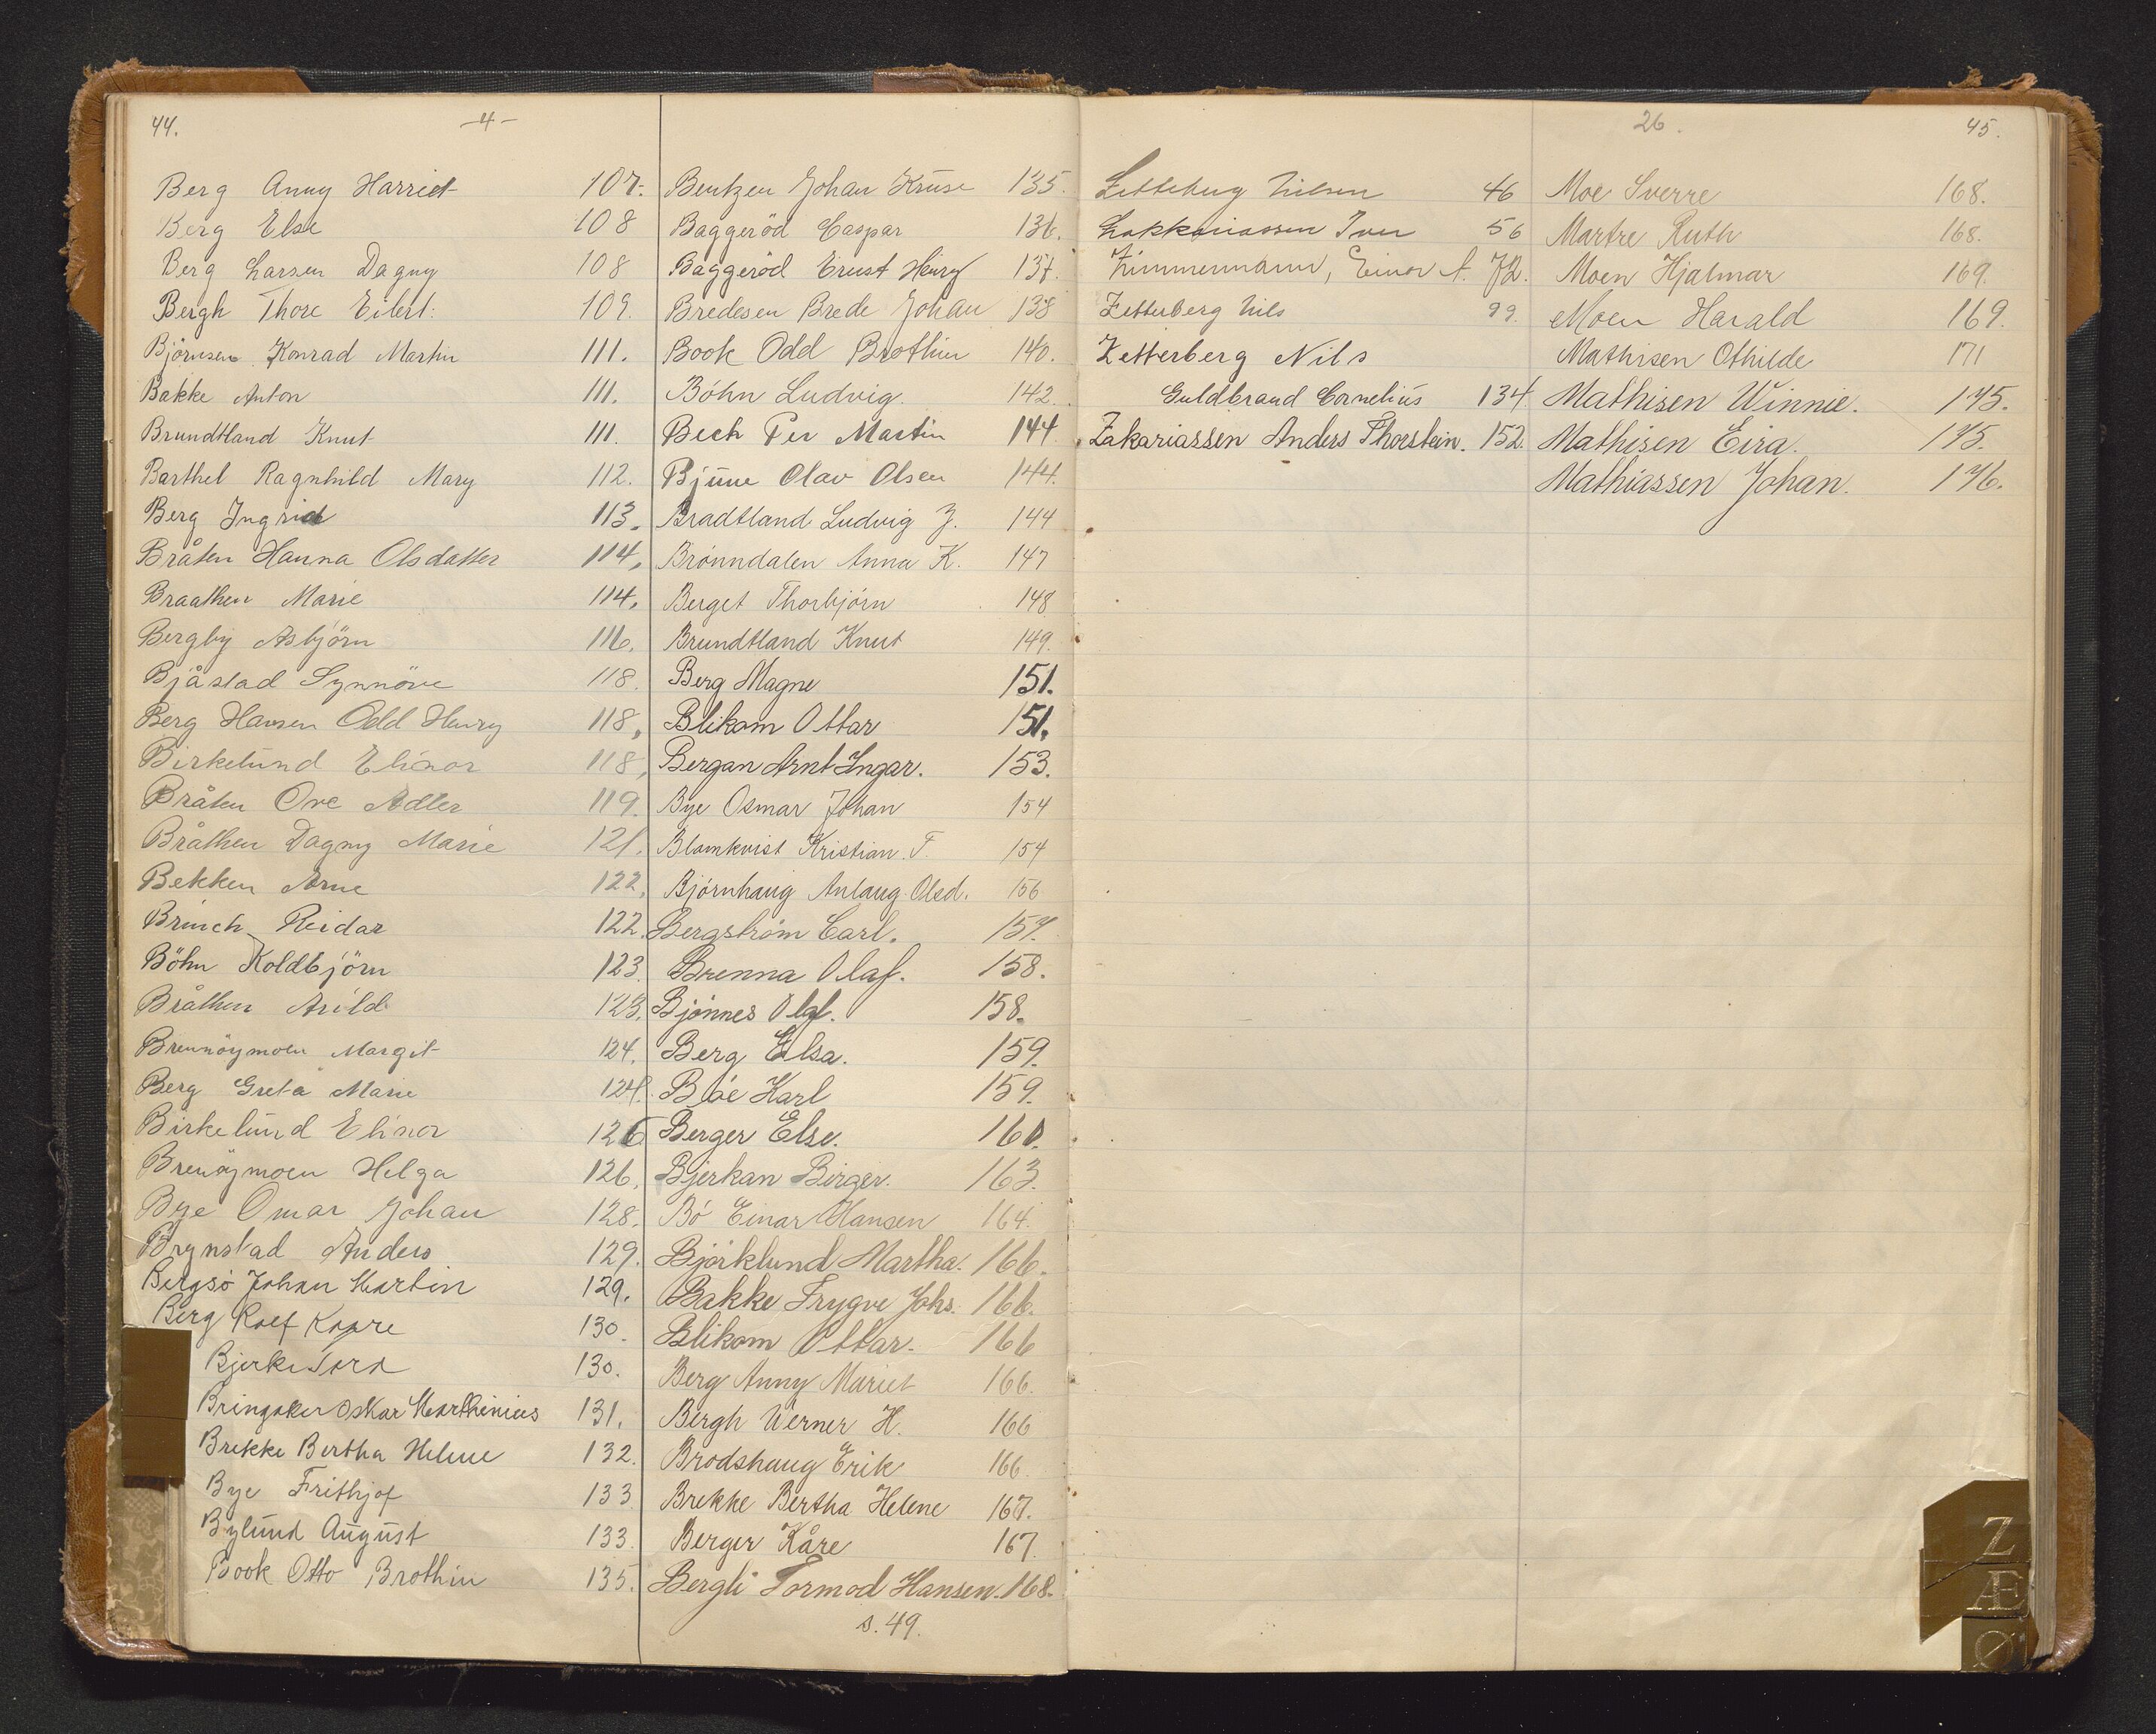 44.
-4-
Berg Anny Harriet 107.
Berg Else 108
Berg Larsen Dagny 108
Bergh Thore Eilert. 109.
Björnsen Konrad Martin 111.
Bakke Anton 111.
Brundtland Knut 111.
Barthel Ragnhild Mary 112.
Berg Ingrid 113.
Bråten Hanna Olsdatter 114.
Braathen Marie 114.
Bergby Asbjörn 116.
Bjåstad Synnöve 118.
Berg Hansen Odd Henry 118.
Birkelund Elinor 118.
Bråten Ove Adler 119.
Bråthen Dagny Marie 121.
Bekken Arne 122.
Brinch Reidar 122.
Böhn Koldbjörn 123.
Bråthen Arild 123.
Brennöymoen Margit 124.
Berg Greta Marie 124.
Birkelund Elinor 126
Brenöymoen Helga 126.
Bye Omar Johan 128.
Brynstad Anders 129.
Bergsö Johan Martin 129.
Berg Rolf Kaare 130.
Bjerke Tora 130.
Bringaker Oskar Marthinius 131.
Brekke Bertha Helene 132.
Bye Frithjof 133.
Bylund August 133.
Book Otto Brothin 135.
Bentzen Johan Kruse 135.
Baggeröd Caspar 136.
Baggeröd Ernst Henry 137.
Bredesen Brede Johan 138
Book Odd Brothin 140.
Böhn Ludvig. 142.
Bech Per Martin 144
Bjune Olav Olsen 144.
Bradtland Ludvig Z. 144
Brönndalen Anna K. 147
Berget Thorbjörn 148
Brundtland Knut 149.
Berg Magne 151.
Blikom Ottar 151.
Bergan Arnt Ingar. 153.
Bye Osmar Johan 154
Blomkvist Kristian F. 154
Björnhaug Anlaug Olsd. 156
Bergström Carl. 157.
Brenna Olaf. 158.
Bjönnes Olaf. 158.
Berg Elsa. 159.
Böe Karl 159.
Berger Else. 160.
Bjerkan Birger. 163.
Bö Einar Hansen 164.
Björklund Martha. 166.
Bakke Trygve Johs. 166.
Blikom Ottar. 166
Berg Anny Mariet 166.
Bergh Werner H. 166
Brodshaug Erik 166.
Brekke Bertha Helene 167.
Berger Kåre 167.
Bergli Tormod Hansen. 168.
s. 49.
26.
45.
Zetteberg Nilsen 46
Zakkariassen Iver 56
Zimmermann, Einar A. 72.
Zetterberg Nils 99.
Zetterberg Nils
Guldbrand Cornelius 134.
Zakariassen Anders Thorstein. 152.
Moe Sverre 168.
Martre Ruth 168.
Moen Hjalmar 169.
Moen Harald 169.
Mathisen Othilde 171
Mathisen Winnie. 175.
Mathisen Eira. 175.
Mathiassen Johan. 176.
Z
Æ
Ø